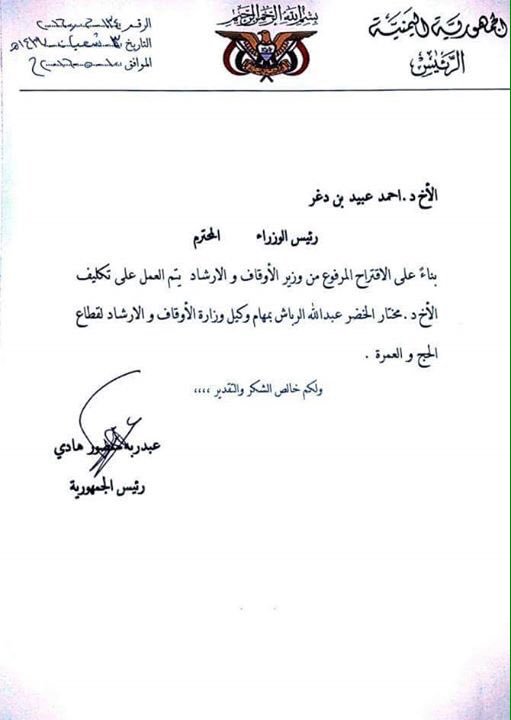 الجمهورية اليمنية
الرئيس
بسم الله الرحمن الرحيم
الرقم
التاريخ ٣ شعبان ١٤٣٧هـ
الموافق
الأخ د. احمد عبيد بن دغر
رئيس الوزراء المحترم
بناءً على الاقتراح المرفوع من وزير الأوقاف و الارشاد يتم العمل على تكليف
الأخ د. مختار الخضر عبدالله الرباش بمهام وكيل وزارة الأوقاف و الارشاد لقطاع
الحج و العمرة .
ولكم خالص الشكر والتقدير ،،،،
عبدربه منصور هادي
رئيس الجمهورية